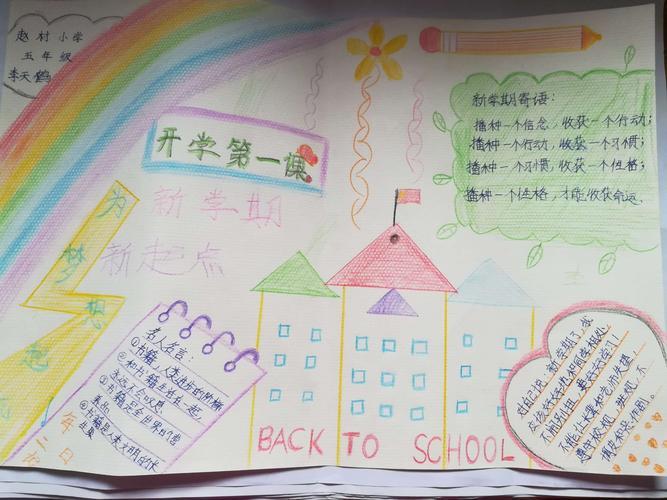 赵村小学
五年级
李天鹤
开学第一课
新学期寄语:
播种一个信念,收获一个行动;
播种一个行动,收获一个习惯;
播种一个习惯,收获一个性格;
播种一个性格,才能收获命运.
为
新学期
新起点
梦
想
起
名人名言:
①书籍
②和书籍生活在一起,
永远不会叹息.
③书籍是全世界的营
④书籍是人类文明的长
BACK TO SCHOOL
对自己说:新学期了,我
应该好好地和同学相处,
不闹别扭,要好好学习
不能让父母和老师失望,
遵守校规、班规,不